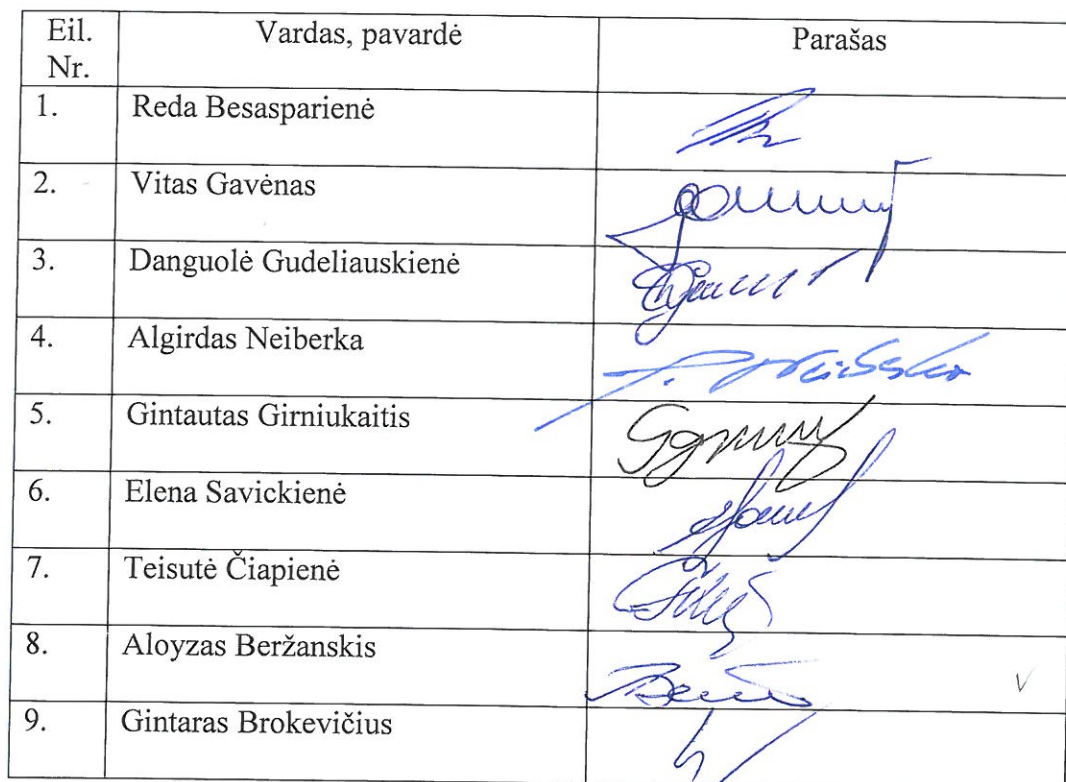 Eil. Nr. Vardas, pavardė Parašas
1. Reda Besasparienė
2. Vitas Gavėnas
3. Danguolė Gudeliauskienė
4. Algirdas Neiberka
5. Gintautas Girniukaitis
6. Elena Savickienė
7. Teisutė Čiapienė
8. Aloyzas Beržanskis
9. Gintaras Brokevičius